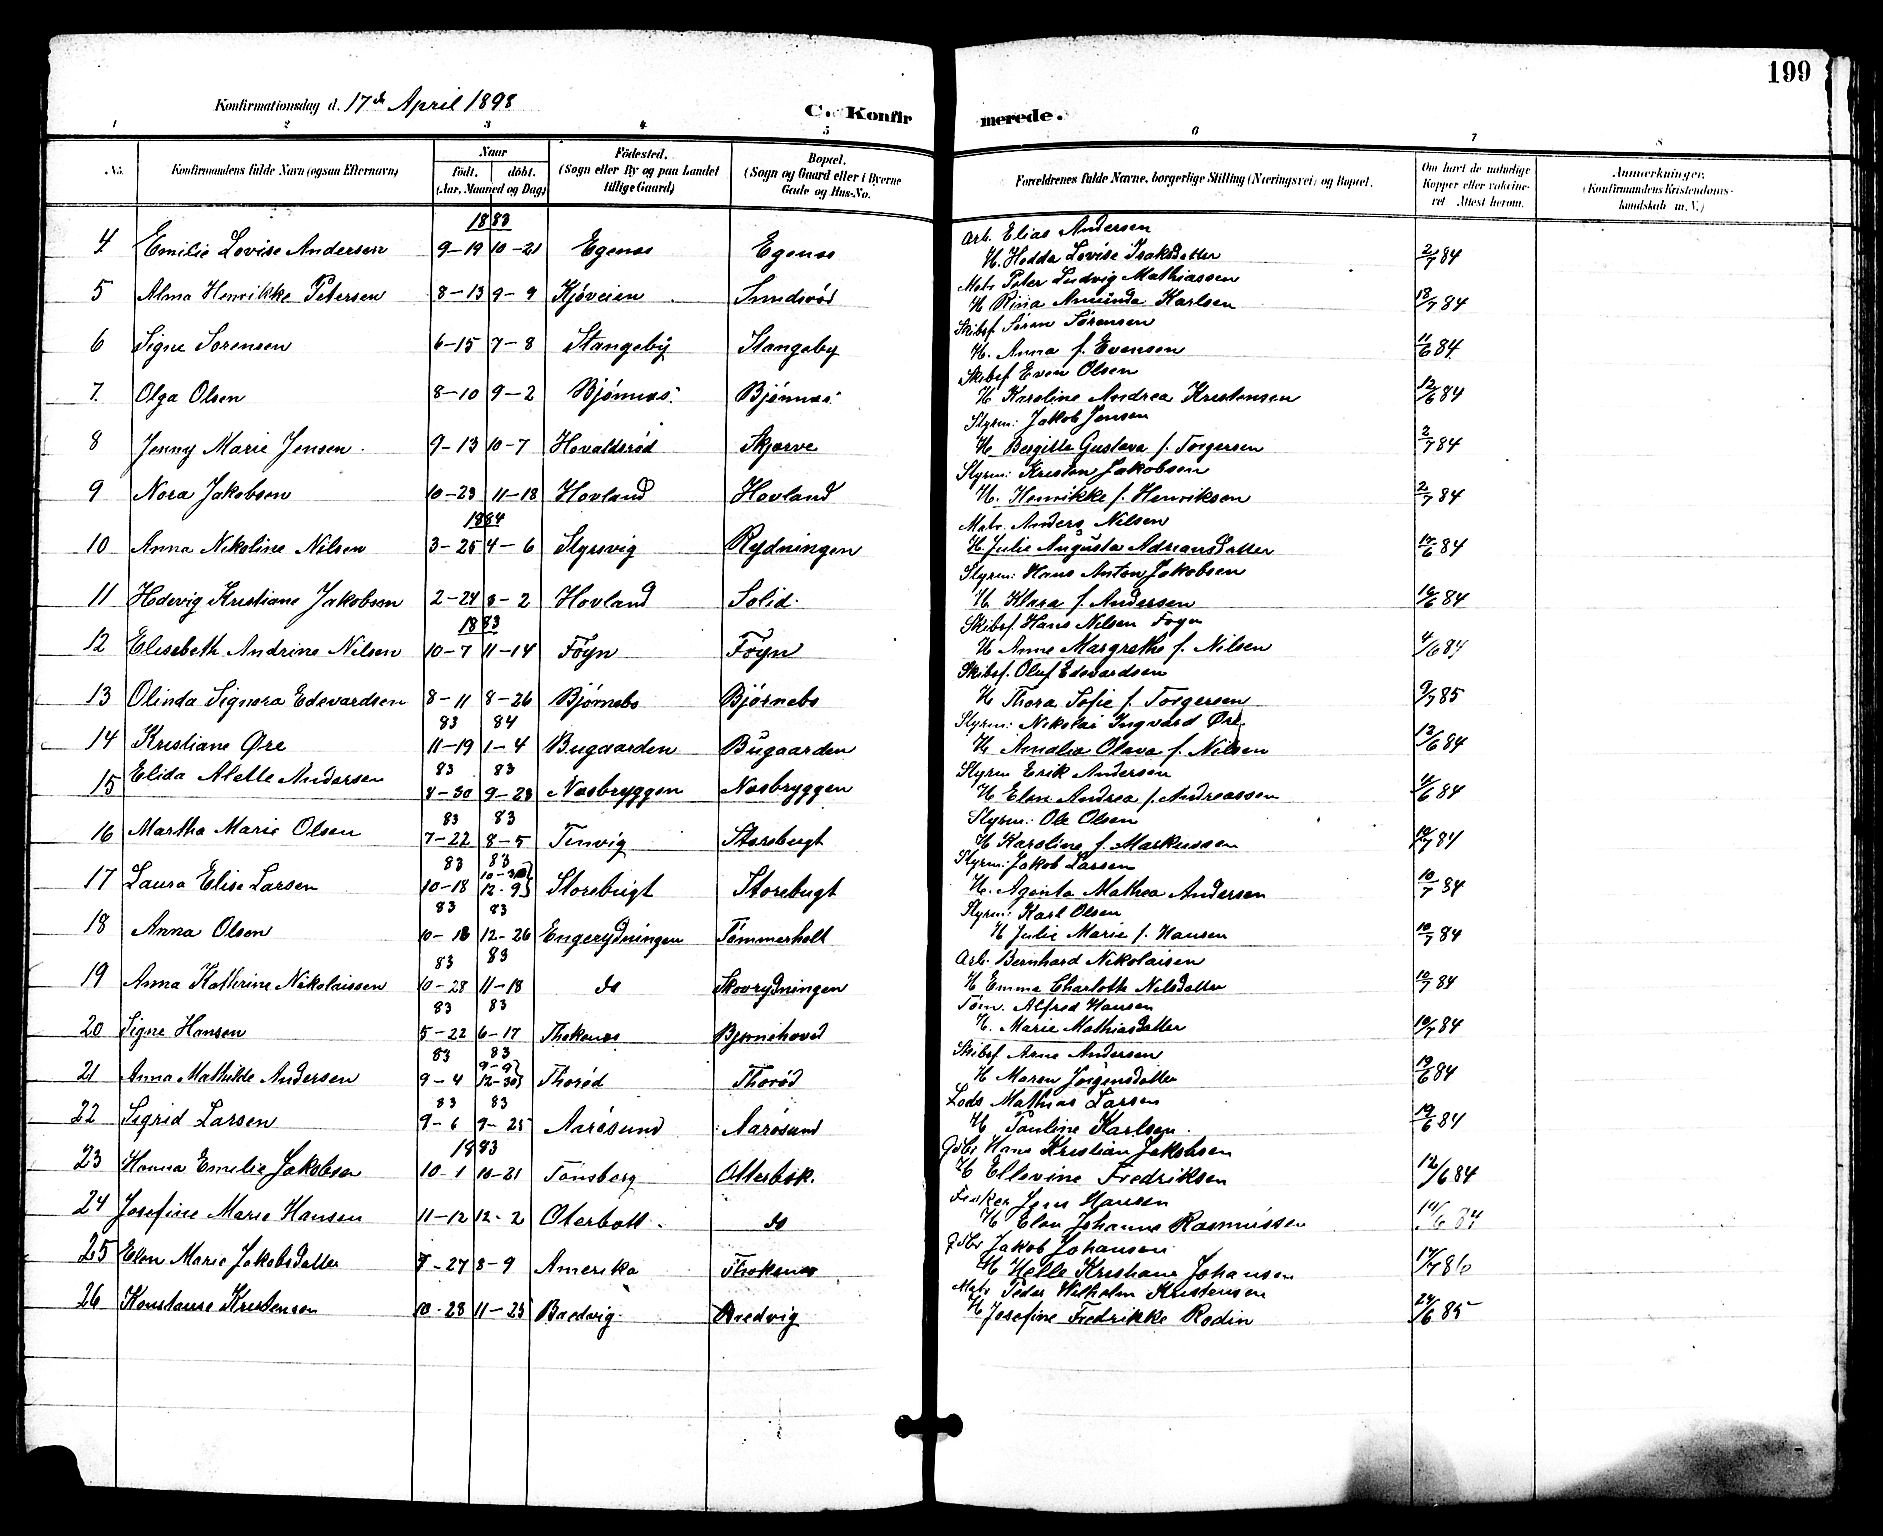 199
Konfirmationsdag d. 17de April 1898
C. Konfirmerede.
1 2 3 4 5 6 7 8
No. Konfirmandens fulde Navn (ogsaa Efternavn) Naar født. døbt. (Aar, Maaned og Dag) Fødested. (Sogn eller By og paa Landet tillige Gaard) Bopæl. (Sogn og Gaard eller i Byerne Gade og Hus-No. Forældrenes fulde Navne, borgerlige Stilling (Næringsvei) og Bopæl. Om havt de naturlige Kopper eller vaksineret Attest herom. Anmerkninger. (Konfirmandens Kristendomskundskab m. V.)
1883
Arb. Elias Andersen
4 Emilie Lovise Andersen 9-19 10-21 Egenes Egenes H. Hedda Lovise Isaksdatter 2/7 84
Matr. Peter Ludvig Mathiassen
5 Alma Henrikke Petersen 8-13 9-9 Kjøveien Sundsrød H Rina Amunda Karlsen 13/7 84
Skibsf. Søren Sørensen
6 Signe Sorensen 6-15 7-8 Stangeby Stangeby H. Anna f. Evensen 11/6 84
Skibsf Even Olsen
7. Olga Olsen 8-10 9-2 Bjønnes Bjønnes H Karoline Andrea Kristensen 12/6 84
Styrm: Jakob Jensen
8 Jenny Marie Jensen 9-13 10-7 Hovaldsrød Skjerve H Bergitte Gustava f. Torgersen 2/7 84
Styrm: Kristen Jakobsen
9 Nora Jakobsen 10-23 11-18 Hovland Hovland H. Henrikke f. Henriksen 2/7 84
1884
Matr. Anders Nilsen
10 Anna Nikoline Nilsen 3-25 4-6 Styrsvig Rydningen H Julie Augusta Adriansdatter 14/6 84
Styrm: Hans Anton Jakobsen
11 Hedevig Kristiane Jakobsen 2-24 3-2 Hovland Solid. H Klara f. Andersen 16/6 84
1883
Skibsf. Hans Nilsen Foyn
12 Elisebeth Andrine Nilsen 10-7 11-14 Föyn Föyn H Anne Margrethe f. Nilsen 4/6 84
Skibsf. Oluf Edevardsen
13 Olinda Signora Edevardsen 8-11 8-26 Bjørnebo Bjørnebo H Thora Sofie f. Torgersen 9/7 85
83 84
Styrm: Nikolai Ingvard Øre
14 Kristiane Øre 11-19 1-4 Bugaarden Bugaarden H Amalia Olava f. Nilsen 13/6 84
83 83
Styrm Erik Andersen
15 Elida Alette Andersen 8-30 9-23 Nesbryggen Nesbryggen H Elen Andrea f. Andreassen 4/6 84
83 83
Styrm: Ole Olsen
16 Martha Marie Olsen 7-22 8-5 Tenvig Storebugt H Karoline f Markussen 10/7 84
83 83
10-30
Styrm: Jakob Larsen
17 Laura Elise Larsen 10-18 12-9 Storebugt Storebugt H. Agenta Mathea Andersen 10/7 84
83 83
Styrm: Karl Olsen
18 Anna Olsen 10-18 12-26 Engerydningen Tømmerholt H Julie Marie f. Hansen 10/7 84
83 83
Arb. Bernhard Nikolaisen
19 Anna Kathrine Nikolaissen 10-28 11-18 do Skovrydningen H Emma Charloth Nilsdatter 10/7 84
83 83
Tøm. Alfred Hansen
20 Signe Hansen 5-22 6-17 Thokenes Bjørnehoved H. Marie Mathiasdatter 10/7 84
83 83
9-9
Skibsf Arne Andersen
21 Anna Mathilde Andersen 9-4 12-30 Thorød Thorød H Maren Jørgensdatter 19/6 84
83 83
Lods Mathias Larsen
22 Sigrid Larsen 9-6 9-25 Aarøsund Aarøsund H Pauline Karlsen. 19/6 84
1883
Gdbr Hans Kristian Jakobsen
23 Hanna Emelie Jakobsen 10-1 10-21 Tønsberg Otterbæk. H Ellevine Fredriksen 12/6 84
Fisker Jens Hansen
24 Josefine Marie Hansen 11-12 12-2 Oterbæk. do H Elen Johanne Rasmussen 14/6 84
Gdbr Jakob Johansen
25 Elen Marie Jakobsdatter 7-27 8-9 Amerika Thokenes H Helle Kristiane Johansen 17/7 86
Matr Peder Wilhelm Kristensen
26 Konstanse Kristensen 10-28 11-25 Bredvig. Bredvig H Josefine Fredrikke Rodin 24/6 85